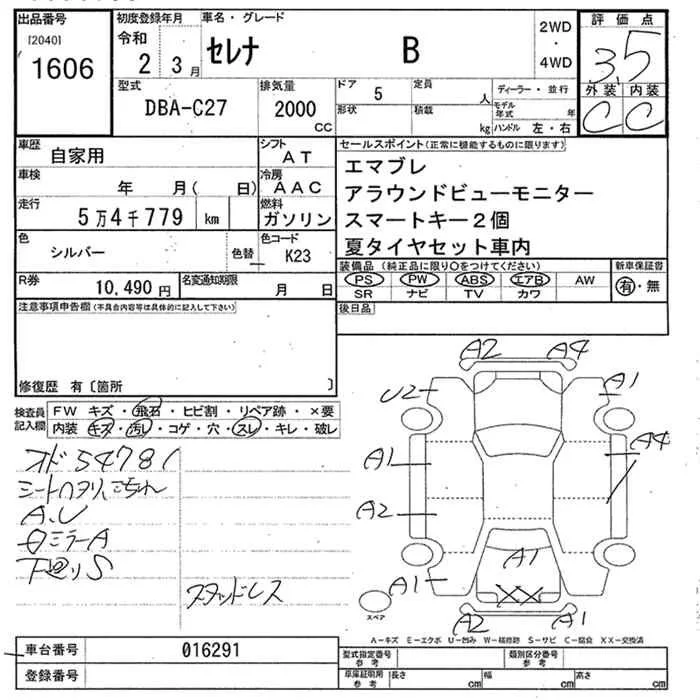 出品番号 初度登録年月 車名・グレード 2WD・4WD 評価点
[2040] 1606 令和 2 3月 セレナ B 3.5
外装 内装
C C
型式 排気量 ドア 定員 ディーラー・並行
DBA-C27 2000 CC 5 人
形状 積載 kg モデル年式 年
ハンドル 左・右
車歴 自家用 シフト AT
車検 年 月( 日) 冷房 AAC
走行 5万4千779 km 燃料 ガソリン
色 シルバー 色替 色コード K23
R券 10,490円 名変通知期限 月 日
セールスポイント(正常に機能するものに限ります)
エマブレ
アラウンドビューモニター
スマートキー2個
夏タイヤセット車内
装備品(純正品に限り○をつけてください) 新車保証書
PS PW ABS エアB AW 有・無
SR ナビ TV カワ
後日品
注意事項申告欄(不具合内容等は具体的に記入して下さい)
修復歴 有〔箇所 〕
検査員記入欄
FW キズ・飛石・ヒビ割・リペア跡・×要
内装 キズ・汚れ・コゲ・穴・スレ・キレ・破レ
オド54781
シートヘタリ、こちれ
A.U
ミラーA
下廻りS
スタッドレス
A2 A4
U2 A1
A1 A4
A2
A1
A1
A2 A1
スペア
A-キズ E-エクボ U-凹み W-補修跡 S-サビ C-腐食 XX-交換済
車台番号 016291
登録番号
型式指定番号 参考 類別区分番号 参考
車庫証明用 参考 長さ cm 幅 cm 高さ cm